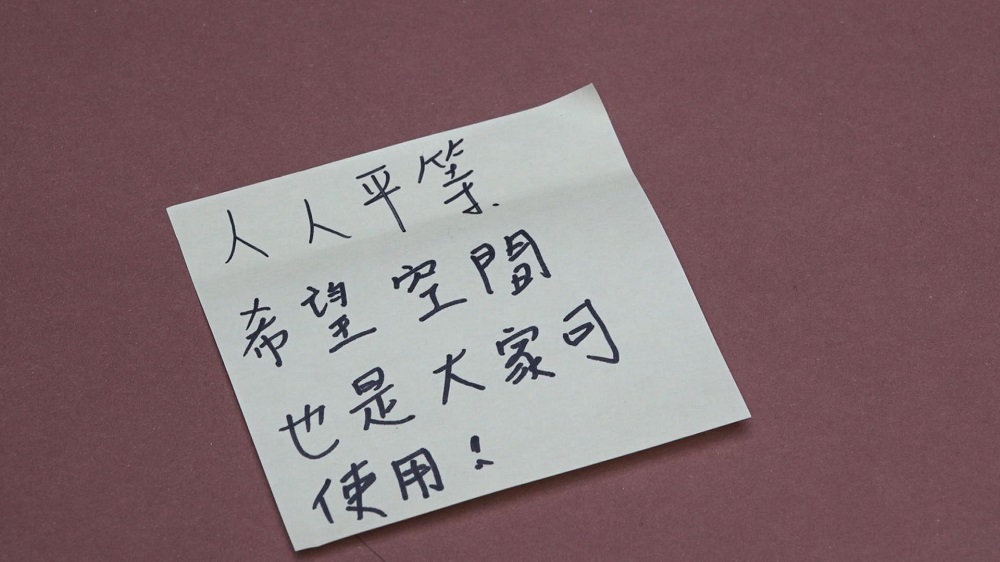 人人平等.
希望空間
也是大家可
使用!